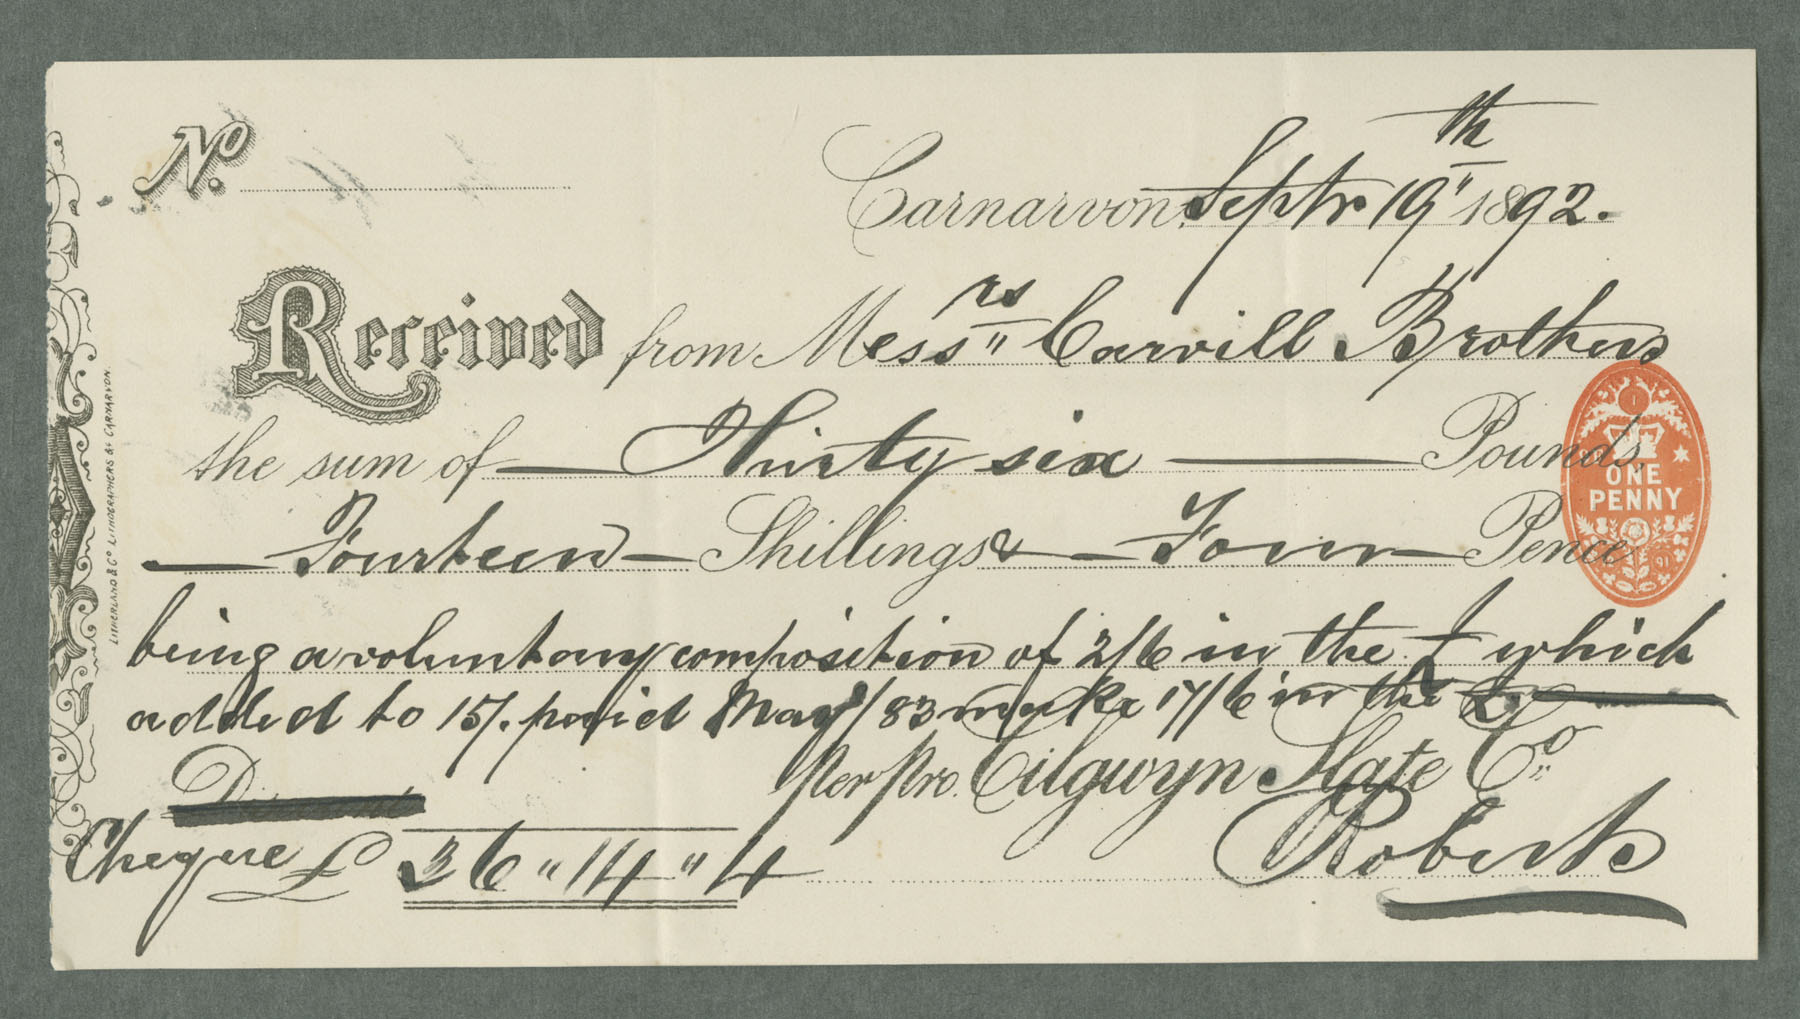 No.
Carnarvon, Septr 19th 1892.
Received from Messrs Carvill Brothers
the sum of Thirty six Pounds,
Fourteen Shillings & Four Pence
being a voluntary composition of 2/6 in the £ which
added to 15/. paid May /83 make 17/6 in the £.
per pro. Cilgwyn Slate Co.,
Discount
Cheque £ 36 " 14 " 4
Roberts
ONE
PENNY
LITHERLAND & Co LITHOGRAPHERS &c CARNARVON.